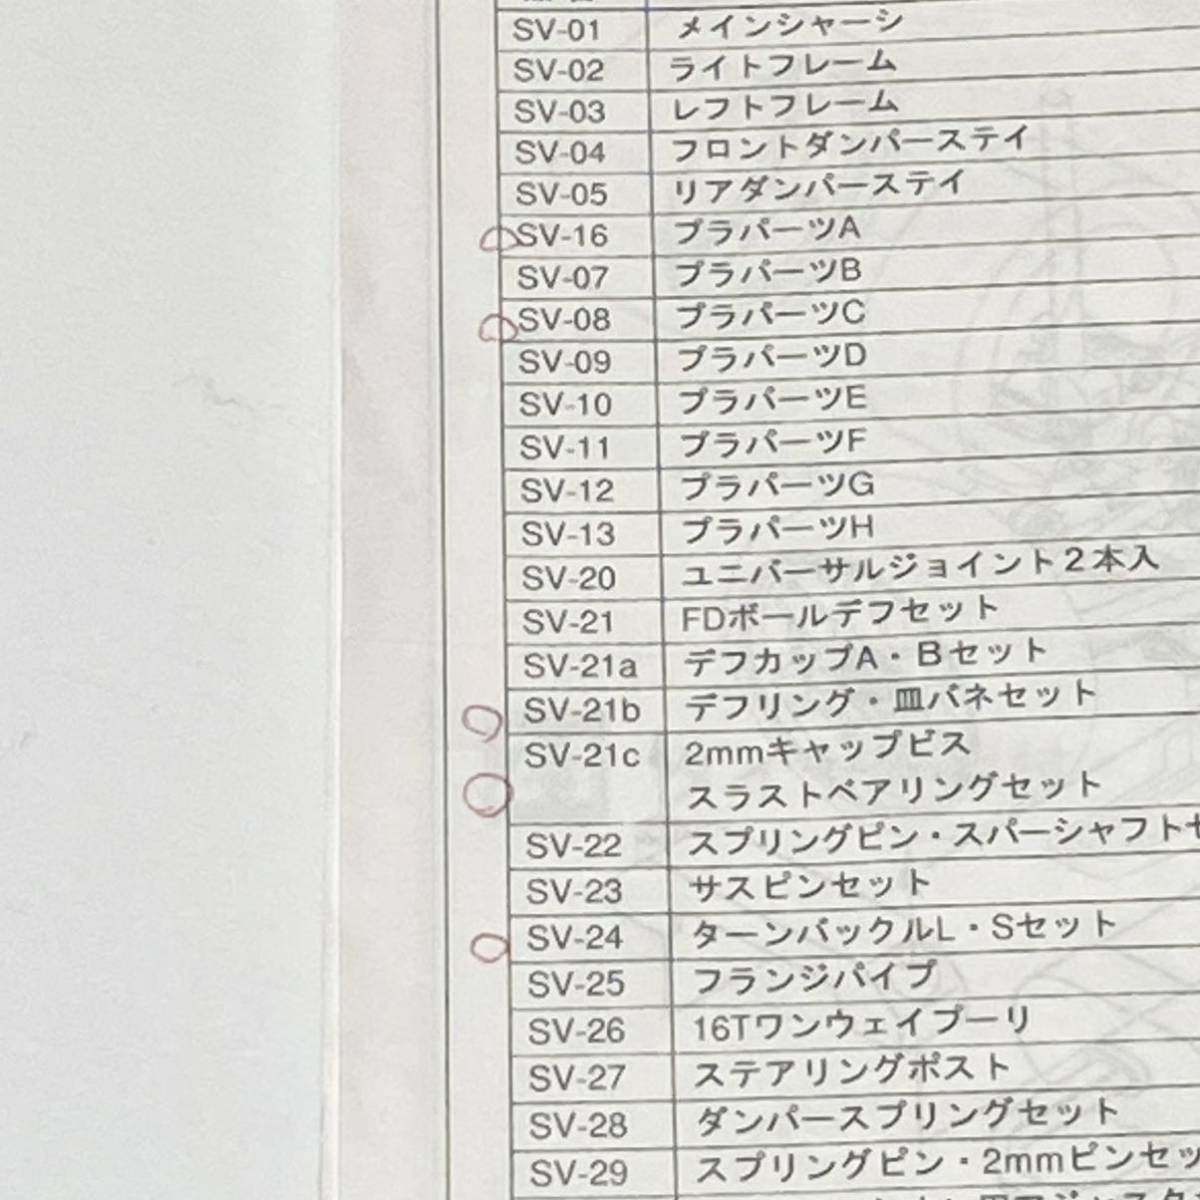 SV-01 メインシャーシ
SV-02 ライトフレーム
SV-03 レフトフレーム
SV-04 フロントダンパーステイ
SV-05 リアダンパーステイ
SV-16 プラパーツA
SV-07 プラパーツB
SV-08 プラパーツC
SV-09 プラパーツD
SV-10 プラパーツE
SV-11 プラパーツF
SV-12 プラパーツG
SV-13 プラパーツH
SV-20 ユニバーサルジョイント2本入
SV-21 FDボールデフセット
SV-21a デフカップA・Bセット
SV-21b デフリング・皿バネセット
SV-21c 2mmキャップビス
スラストベアリングセット
SV-22 スプリングピン・スパーシャフトセ
SV-23 サスピンセット
SV-24 ターンバックルL・Sセット
SV-25 フランジパイプ
SV-26 16Tワンウェイプーリ
SV-27 ステアリングポスト
SV-28 ダンパースプリングセット
SV-29 スプリングピン・2mmピンセッ